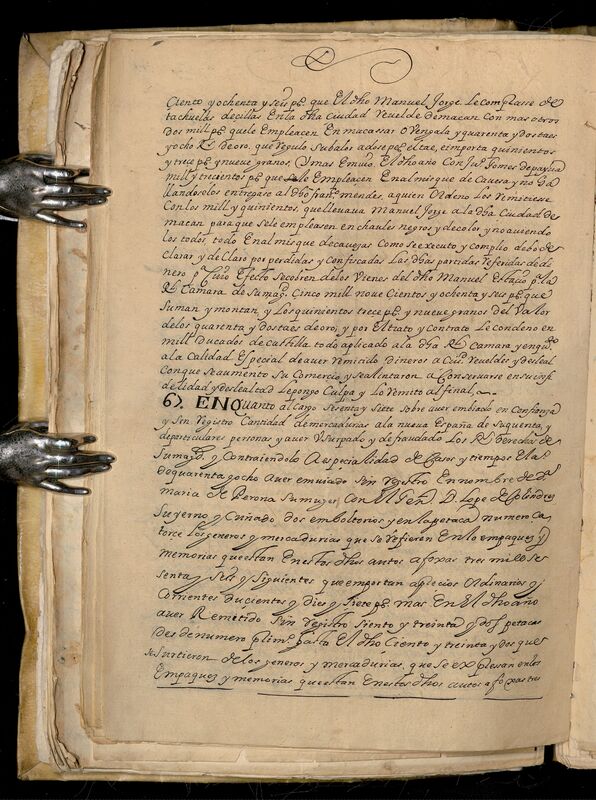 Ciento y ochenta y seis ps que El dho Manuel Jorge Le comprasse de
tachuelas decillas En la dha ciudad Reuelde demacan con mas otros
dos mill ps que le Empleacen En mucassar O Vengala y quarenta y dos taes
y ocho Rs de oro, que Regulo Subalor adose ps el tae, e importa quinientos
y trece ps y nueve granos, Y mas Emuio El dho año Con Ju Gomes depayua
mill y trecientos ps que sele Empleacen En almisque de Cauesa y no ha
llandosolos entregase al dho fran mendes, a quien Ordeno Los Remitiese
Con los mill y quinientos, que lleuaua Manuel Jorge a la dha Ciudad de
macan para que sele empleasen en chaules negros y decolor, y no auiendo
los todos, todo En almisque decauesas Como se executo, y complio debo de
Clarar y de Claro por perdidas y confiscadas Las dhas partidas referidas de di
nero, y Cuio Efecto se cobren delos Vienes del dho Manuel Estacio pa la
Rl Camara de Sumagd, Cinco mill noue Cientos y ochenta y seis ps que
Suman y montan, y Los quinientos trece ps y nueve granos del Valor
delos quarenta y dos taes de oro, y por El trato y contrato Le condeno en
mill Ducados de castilla todo aplicado a la dha Rl Camara y en qto
a la Calidad Especial de auer Remitido Dineros a Ciud Reuelde y desleal
Con que se aumento Su Comercio y se alintaron a Conseruarse en su infi
delidad y deslealtad Le pongo Culpa y Lo Remito al final,
67. ENQuanto al cargo Sesenta y Siete sobre auer embiado en Confianza
y Sin Registro Cantidad de mercadurias a la nueva España de Su quenta, y
de particulares personas y auer Usurpado y defraudado Los Rs Derechos de
Sumagd, y Contraiendolo A especialidad de Casos y tiempos El a
de quarenta y ocho Auer emuiado Sin Registro En nombre de Da
maria de Perona Su muger, Con El Genl D. Lope de Colindres
Su yerno y Cuñado dos emboltorios y en la petaca numero Ca
torce Los generos y mercadurias que se Refieren En lo empaques y
memorias que estan En estos dhos autos a foxas tres mill y ses
senta y Seis y Siguientes que emportan a precios Ordinarios y
Corrientes ducientos y dies y Siete ps mas En El dho año
auer Remitido Sin Registro Siento y treinta y dos petacas
des de numero prim hasta El dho Ciento y treinta y dos que
se Surtieron de los generos y mercadurias, que se expresan en los
Empaques y memorias que estan En estos dhos autos a foxas tres